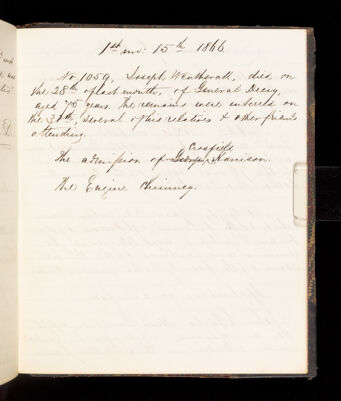 1st mo: 15th 1866
No 1059, Joseph Weatherall, died on
the 28th of last month, of General Decay,
aged 75 years. the remains were interred on
the 30th, several of his relatives & other friends
attending.
Crosfield
The admission of George Harrison.
The Engine Chimney.